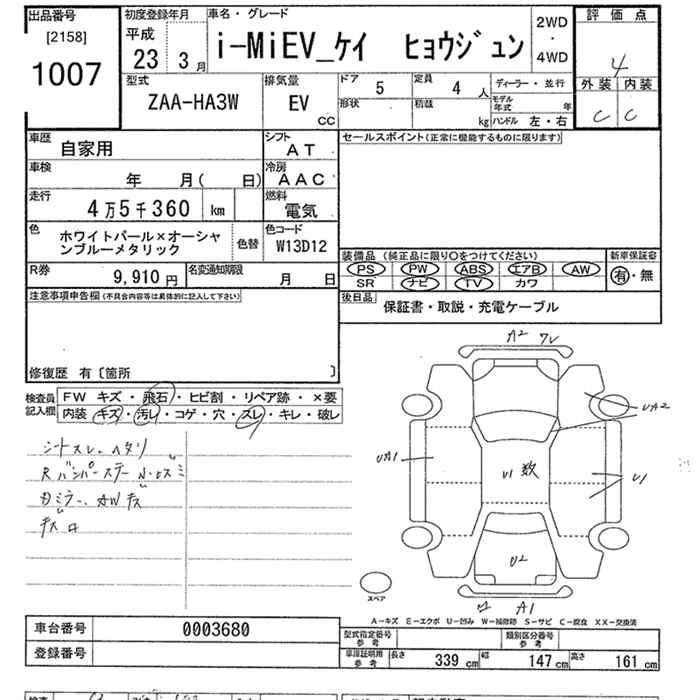 出品番号
[2158]
1007
初度登録年月
平成
23 3月
車名・グレード
i-MiEV_ケイ ヒョウジュン
2WD
・
4WD
評価点
4
外装 内装
C C
型式
ZAA-HA3W
排気量
EV
CC
ドア 5
定員 4 人
ディーラー・並行
形状
積載 kg
モデル年式 年
ハンドル 左・右
車歴
自家用
シフト
AT
セールスポイント(正常に機能するものに限ります)
車検
年 月( 日)
冷房
AAC
走行
4万5千360 km
燃料
電気
色
ホワイトパール×オーシャンブルーメタリック
色替
色コード
W13D12
装備品 (純正品に限り○をつけてください)
PS PW ABS エアB AW
SR ナビ TV カワ
新車保証書
有・無
R券
9,910 円
名変通知期限
月 日
後日品
保証書・取説・充電ケーブル
注意事項申告欄(不具合内容等は具体的に記入して下さい)
修復歴 有〔箇所 〕
検査員記入欄
FW キズ・飛石・ヒビ割・リペア跡・×要
内装 キズ・汚レ・コゲ・穴・スレ・キレ・破レ
シートスレ、ヘタリ
A2 ワレ
UA2
UA1
U1 数
U1
U2
A1
スペア
A-キズ E-エクボ U-凹み W-補修跡 S-サビ C-腐食 XX-交換済
車台番号
0003680
登録番号
型式指定番号 参考
類別区分番号 参考
車庫証明用 参考
長さ 339 cm
幅 147 cm
高さ 161 cm